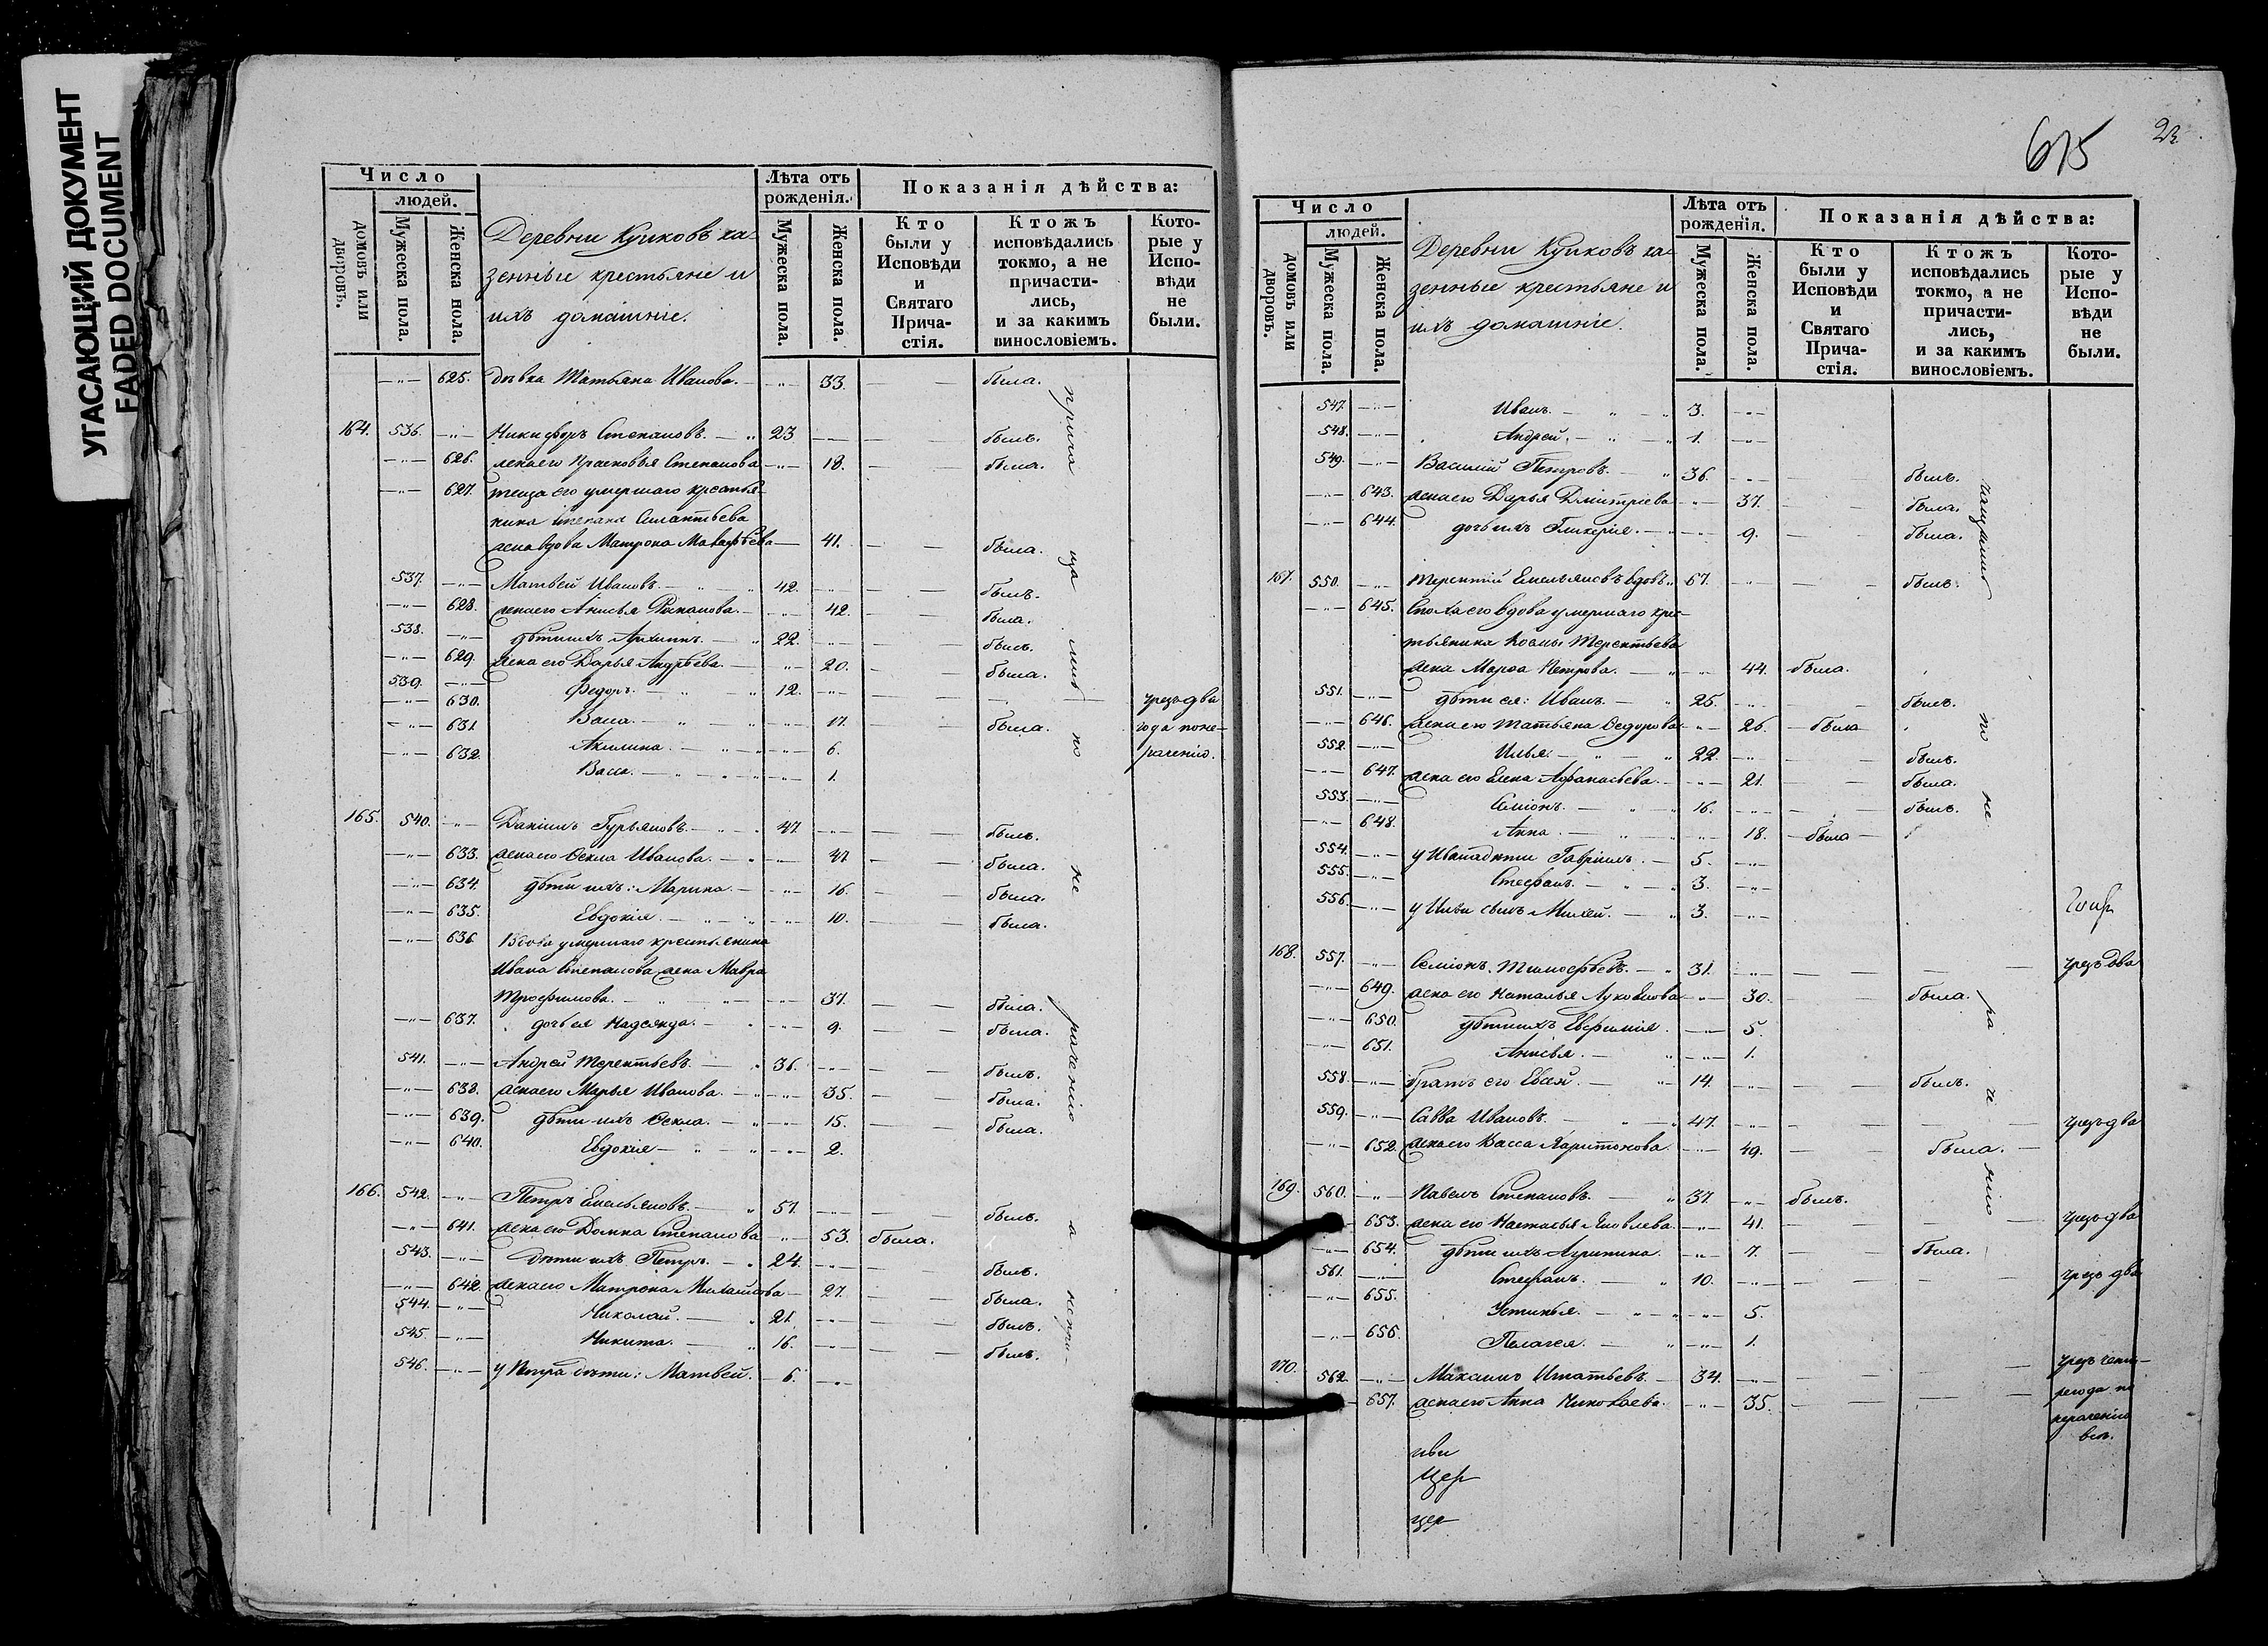 УГАСАЮЩИЙ ДОКУМЕНТ
FADED DOCUMENT
Число
людей.
домовъ или дворовъ.
Мужеска пола.
Женска пола.
Деревни Куиковъ ка-
зенные крестьяне и
ихъ домашніе.
Лѣта отъ
рожденія.
Мужеска пола.
Женска пола.
Показанія дѣйства:
Кто
были у
Исповѣди
и
Святаго
Прича-
стія.
Ктожъ
исповѣдались
токмо, а не
причасти-
лись,
и за какимъ
винословіемъ.
Кото-
рые у
Испо-
вѣди
не
были.
625. дѣвка Татьяна Иванова. 33. была.
164. 536. Никифоръ Степановъ. 23 былъ.
626. жена его Прасковья Степанова 18. была.
627. теща его умершаго крестья-
нина Степана
жена вдова Матрона 41. была.
537. Матвей Ивановъ 42. былъ.
628. жена его Анисья 42. была.
538. дѣти ихъ Архипъ. 22. былъ.
629. жена его Дарья Андрѣева. 20. была.
539. Федоръ. 12. чрезъ два
630. Васса. 17. была. года поне-
631. Акилина. 6. раченію.
632. Васса. 1.
165. 540. Даніилъ Гурьяновъ. 47. былъ.
633. жена его Ѳекла Иванова. 47 была.
634. дѣти ихъ: Марина. 16. была.
635. Евдокія. 10. была.
636. Вдова умершаго крестьянина
Ивана Степанова жена Мавра
Трофимова. 37. была.
637. дочь ея Надежда. 9. была.
541. Андрей Терентьевъ. 36. былъ.
638. жена его Марья Иванова. 35. была.
639. дѣти ихъ Ѳекла. 15. была.
640. Евдокія 2.
166. 542. Петръ Емельяновъ. 57. былъ.
641. жена его Домна Степанова 53. была.
543. Дѣти ихъ Петръ. 24. былъ.
642. жена его Матрона Михайлова 27. была.
544. Николай. 21. былъ.
545. Никита. 16. былъ.
546. у Петра дѣти: Матвей. 6.
прича
ща
лись
по
не
раченію
а
непри-
675
Число
людей.
домовъ или дворовъ.
Мужеска пола.
Женска пола.
Деревни Куиковъ ка-
зенные крестьяне и
ихъ домашніе.
Лѣта отъ
рожденія.
Мужеска пола.
Женска пола.
Показанія дѣйства:
Кто
были у
Исповѣди
и
Святаго
Прича-
стія.
Ктожъ
исповѣдались
токмо, а не
причасти-
лись,
и за какимъ
винословіемъ.
Кото-
рые у
Испо-
вѣди
не
были.
547. Иванъ. 3.
548. Андрей. 1.
549. Василій Петровъ. 36. былъ.
643. жена его Дарья Дмитріева 37. была.
644. дочь ихъ Гликерія. 9. была.
167. 550. Терентій Емельяновъ вдовъ. 67. былъ.
645. Сноха его вдова умершаго крес-
тьянина Космы Терентьева
жена Марѳа Петрова. 44. была.
551. дѣти ея: Иванъ. 25. былъ.
646. жена его Татьяна Ѳедорова 26. была
552. Илья. 22. былъ.
647. жена его Елена Афанасьева. 21. была.
553. Семіонъ. 16. былъ.
648. Анна. 18. была
554. у Ивана дѣти Гавріилъ. 5.
555. Стефанъ. 3.
556. у Ильи сынъ Михей. 3.
168. 557. Семіонъ Тимофѣевъ. 31. чрезъ два
649. жена его Наталья 30. была.
650. дѣти ихъ Евфимія. 5.
651. Анисья. 1.
558. братъ его Евсей. 14. былъ.
559. Савва Ивановъ. 47. чрезъ два
652. жена его Васса Харитонова. 49. была.
169. 560. Павелъ Степановъ. 37. былъ.
653. жена его Настасья Яковлева. 41. чрезъ два
654. дѣти ихъ Агрипина. 7. была.
561. Стефанъ. 10. чрезъ два
655. Устинья. 5.
656. Пелагея. 1.
170. 562. Максимъ Игнатьевъ. 34. чрезъ четы-
657. жена его Анна Николаева. 35. ре года по
нераченію
чащались
по
не
ра
че
нію